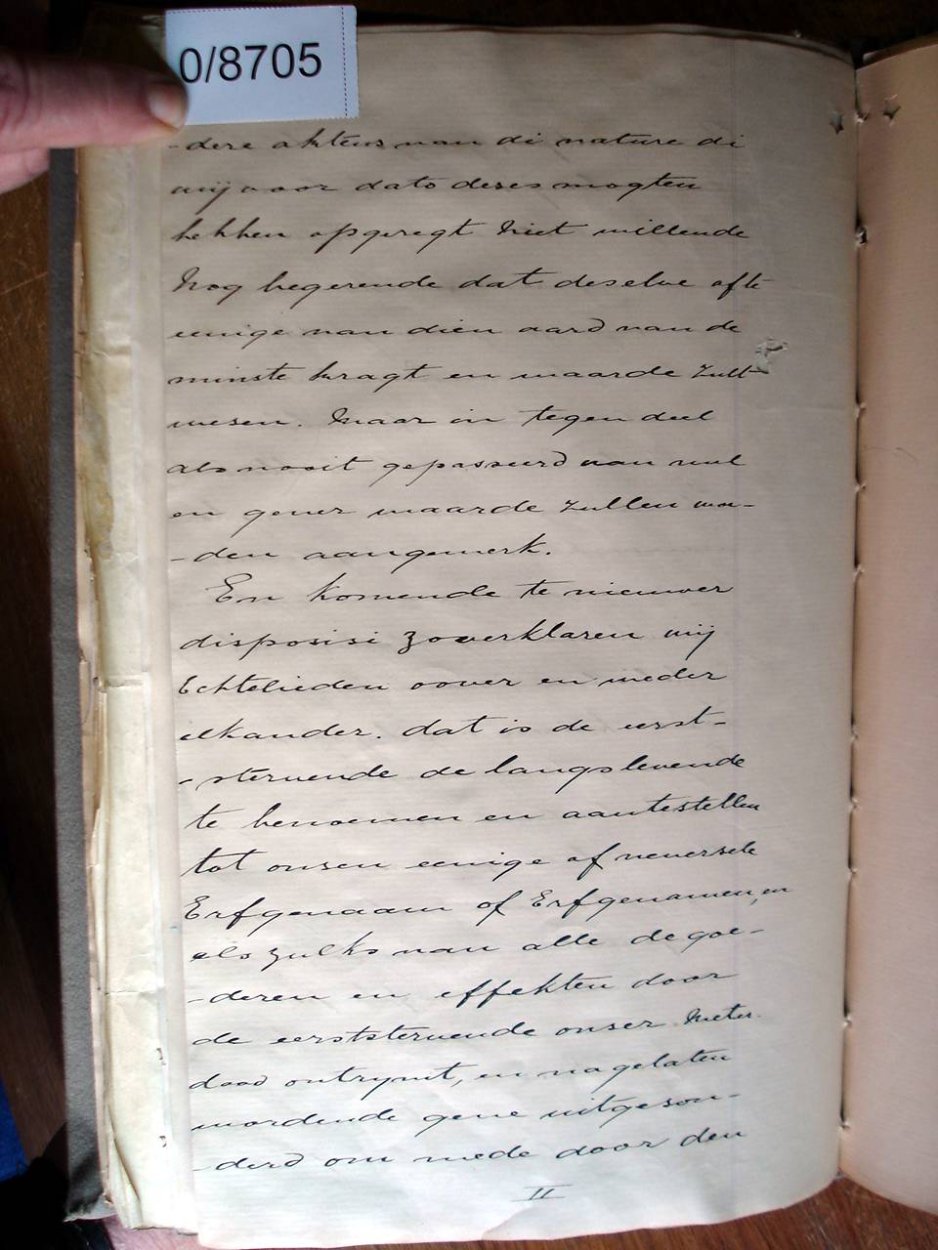 0/8705
-dere aktens van di nature di
wij voor dato deses mogten
hebben opgeregt Niet willende
Nog begerende dat deselve ofte
eenige van dien aard van de
minste kragt en waarde Zult
wesen. Maar in tegen deel
als nooit gepasseerd van nul
en gener waarde zullen wor-
-den aangemerk.
En komende te nieuwer
disposisi zo verklaren wij
Echtelieden oover en weder
elkander. dat is de eerst-
-stervende de langslevende
te benoemen en aantestellen
tot onsen eenige of neversele
Erfgenaam of Erfgenamen, en
els zulks van alle de goe-
-deren en effekten door
de eerststervende onser Meter
dood ontrymt, en nagelaten
wordende gene uitgeson-
-derd om mede door den
II